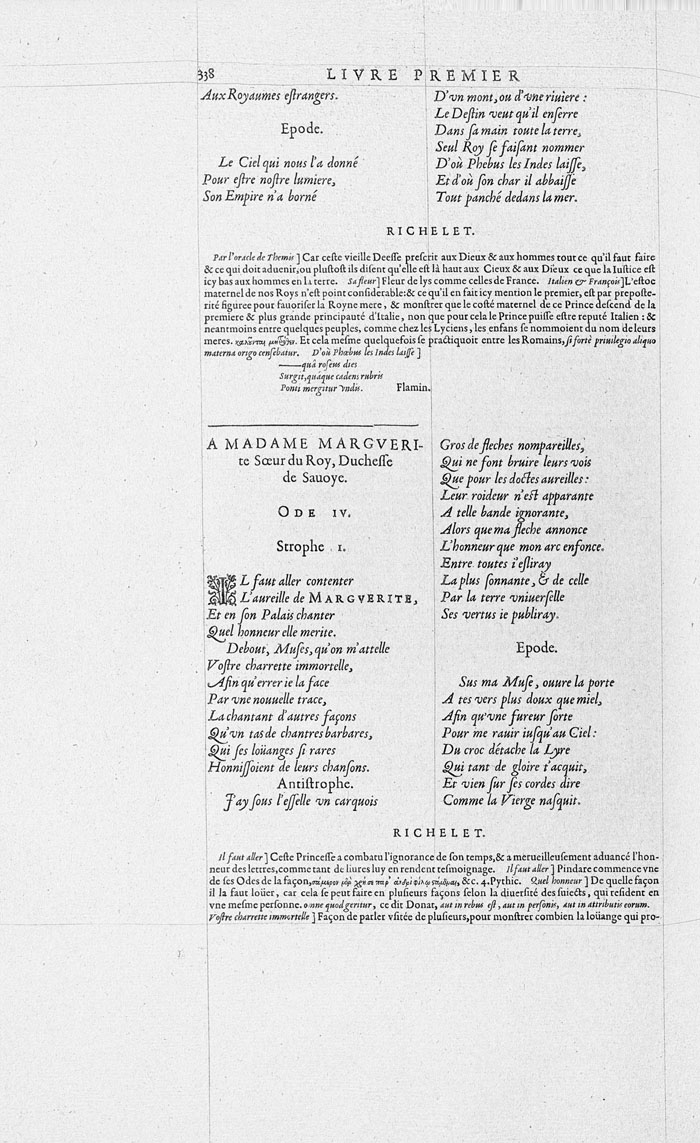 338
LIVRE PREMIER
Aux Royaumes eſtrangers.
Epode.
Le Ciel qui nous l'a donné
Pour eſtre noſtre lumiere,
Son Empire n'a borné
D'vn mont, ou d'vne riuiere :
Le Deſtin veut qu'il enſerre
Dans ſa main toute la terre,
Seul Roy ſe faiſant nommer
D'où Phebus les Indes laiſſe,
Et d'où ſon char il abbaiſſe
Tout panché dedans la mer.
RICHELET.
Par l'oracle de Themis ] Car ceſte vieille Deeſſe preſcrit aux Dieux & aux hommes tout ce qu'il faut faire
& ce qui doit aduenir, ou pluſtoſt ils diſent qu'elle eſt là haut aux Cieux & aux Dieux ce que la Iuſtice eſt
icy bas aux hommes en la terre. Sa fleur ] Fleur de lys comme celles de France. Italien & François ] L'eſtoc
maternel de nos Roys n'eſt point conſiderable: & ce qu'il en fait icy mention le premier, eſt par prepoſte-
rité figuree pour fauoriſer la Royne mere, & monſtrer que le coſté maternel de ce Prince deſcend de la
premiere & plus grande principauté d'Italie, non que pour cela le Prince puiſſe eſtre reputé Italien : &
neantmoins entre quelques peuples, comme chez les Lyciens, les enfans ſe nommoient du nom de leurs
meres. Et cela meſme quelquefois ſe practiquoit entre les Romains, ſi fortè priuilegio aliquo
materna origo cenſebatur. D'où Phœbus les Indes laiſſe ]
—— quà roſeus dies
Surgit, quàque cadens rubris
Ponti mergitur vndis. Flamin.
A MADAME MARGVERI-
te Sœur du Roy, Ducheſſe
de Sauoye.
ODE IV.
Strophe 1.
IL faut aller contenter
L'aureille de MARGVERITE,
Et en ſon Palais chanter
Quel honneur elle merite.
Debout, Muſes, qu'on m'attelle
Voſtre charrette immortelle,
Afin qu'errer ie la face
Par vne nouuelle trace,
La chantant d'autres façons
Qu'vn tas de chantres barbares,
Qui ſes loüanges ſi rares
Honniſſoient de leurs chanſons.
Antiſtrophe.
J'ay ſous l'eſſelle vn carquois
Gros de fleches nompareilles,
Qui ne font bruire leurs vois
Que pour les doctes aureilles :
Leur roideur n'eſt apparante
A telle bande ignorante,
Alors que ma fleche annonce
L'honneur que mon arc enfonce.
Entre toutes i'eſliray
La plus ſonnante, & de celle
Par la terre vniuerſelle
Ses vertus ie publiray.
Epode.
Sus ma Muſe, ouure la porte
A tes vers plus doux que miel,
Afin qu'vne fureur ſorte
Pour me rauir iuſqu'au Ciel :
Du croc détache la Lyre
Qui tant de gloire t'acquit,
Et vien ſur ſes cordes dire
Comme la Vierge naſquit.
RICHELET.
Il faut aller ] Ceſte Princeſſe a combatu l'ignorance de ſon temps, & a merueilleuſement aduancé l'hon-
neur des lettres, comme tant de liures luy en rendent teſmoignage. Il faut aller ] Pindare commence vne
de ſes Odes de la façon, &c. 4. Pythic. Quel honneur ] De quelle façon
il la faut loüer, car cela ſe peut faire en pluſieurs façons ſelon la diuerſité des ſuiects, qui reſident en
vne meſme perſonne. omne quod geritur, ce dit Donat, aut in rebus eſt, aut in perſonis, aut in attributis eorum.
Voſtre charrette immortelle ] Façon de parler vſitée de pluſieurs, pour monſtrer combien la loüange qui pro-